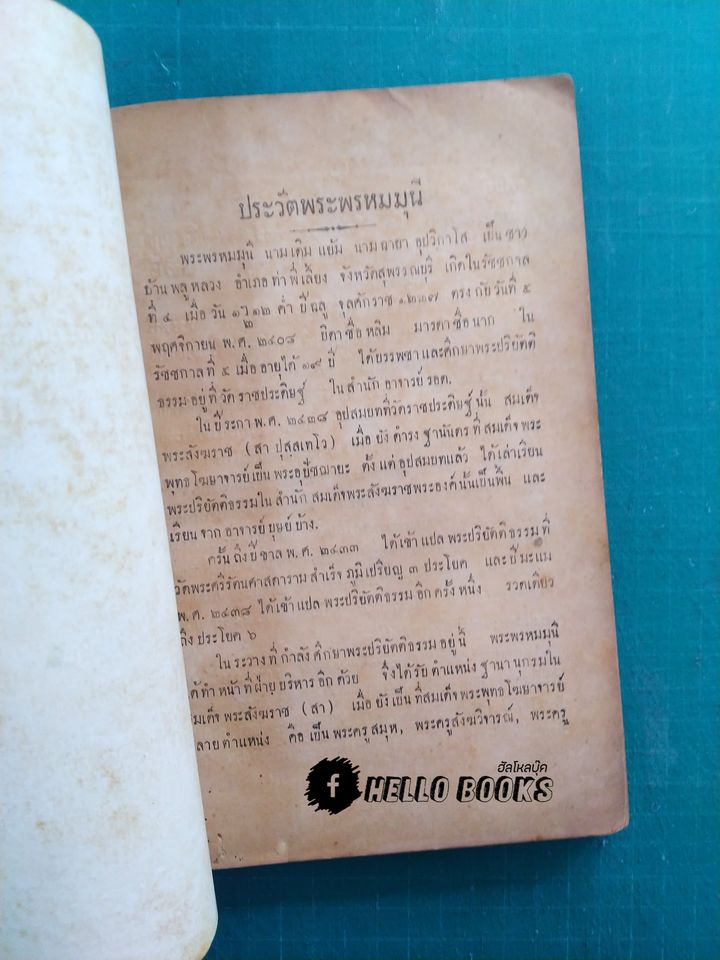 ประวัตพระพรหมมุนี
พระพรหมมุนี นามเดิม แย้ม นามฉายา อุปวิกาโส เป็นชาว
บ้านพลูหลวง อำเภอท่าพี่เลี้ยง จังหวัดสุพรรณบุรี เกิดในรัชชกาล
ที่ ๔ เมื่อ วัน ค่ำ ปีฉลู จุลศักราช ๑๒๓๗ ตรงกับวันที่ ๕
พฤศจิกายน พ.ศ. ๒๔๐๘ บิดาชื่อ หลิม มารดาชื่อ นาก ใน
รัชชกาลที่ ๕ เมื่ออายุได้ ๑๙ ปี ได้บรรพชาและศึกษาพระปริยัตติ
ธรรมอยู่ที่วัดราชประดิษฐ์ ในสำนัก อาจารย์ รอด.
ใน ปีระกา พ.ศ. ๒๔๓๘ อุปสมบทที่วัดราชประดิษฐ์นั้น สมเด็จ
พระสังฆราช (สา ปุสฺสเทโว) เมื่อ ยังดำรง ฐานันดร ที่ สมเด็จ พระ
พุทธโฆษาจารย์เป็น พระอุปัชฌายะ ตั้งแต่อุปสมบทแล้ว ได้เล่าเรียน
พระปริยัตติธรรมใน สำนัก สมเด็จพระสังฆราชพระองค์นั้นเป็นพื้น และ
เรียนจาก อาจารย์ บุษย์ บ้าง.
ครั้นถึงปีขาล พ.ศ. ๒๔๓๓ ได้เข้าแปล พระปริยัตติธรรม ที่
วัดพระศรีรัตนศาสดาราม สำเร็จ ภูมิเปรียญ ๓ ประโยค และปีมะแม
พ.ศ. ๒๔๓๘ ได้เข้าแปล พระปริยัตติธรรม อีก ครั้งหนึ่ง รวดเดียว
ถึง ประโยค ๖
ในระวางที่กำลังศึกษาพระปริยัตติธรรมอยู่นี้ พระพรหมมุนี
ได้ทำหน้าที่ฝ่ายบริหารอีกด้วย จึงได้รับตำแหน่ง ฐานานุกรมใน
สมเด็จพระสังฆราช (สา) เมื่อ ยังเป็น ที่สมเด็จพระพุทธโฆษาจารย์
ลายตำแหน่ง คือ เป็น พระครูสมุห, พระครูสังฆวิจารณ์, พระครู
ฮัลโหลบุ๊ค
f HELLO BOOKS